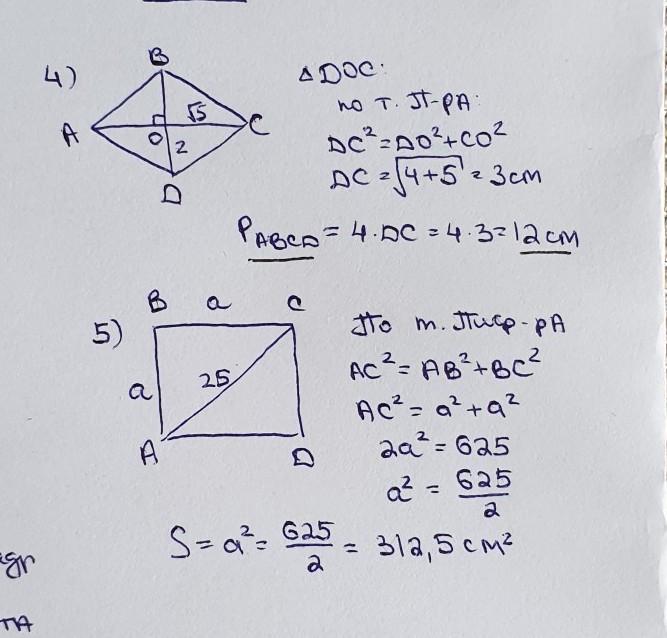 4)
B
A
√5
C
O
2
D
△DOC:
по т. П-рА:
DC² = DO² + CO²
DC = √4+5 = 3 cм
P ABCD = 4·DC = 4·3 = 12 cм
5)
B a C
a
25
A
D
По т. Пиф-рА
AC² = AB² + BC²
AC² = a² + a²
2a² = 625
a² = 625/2
S = a² = 625/2 = 312,5 cм²